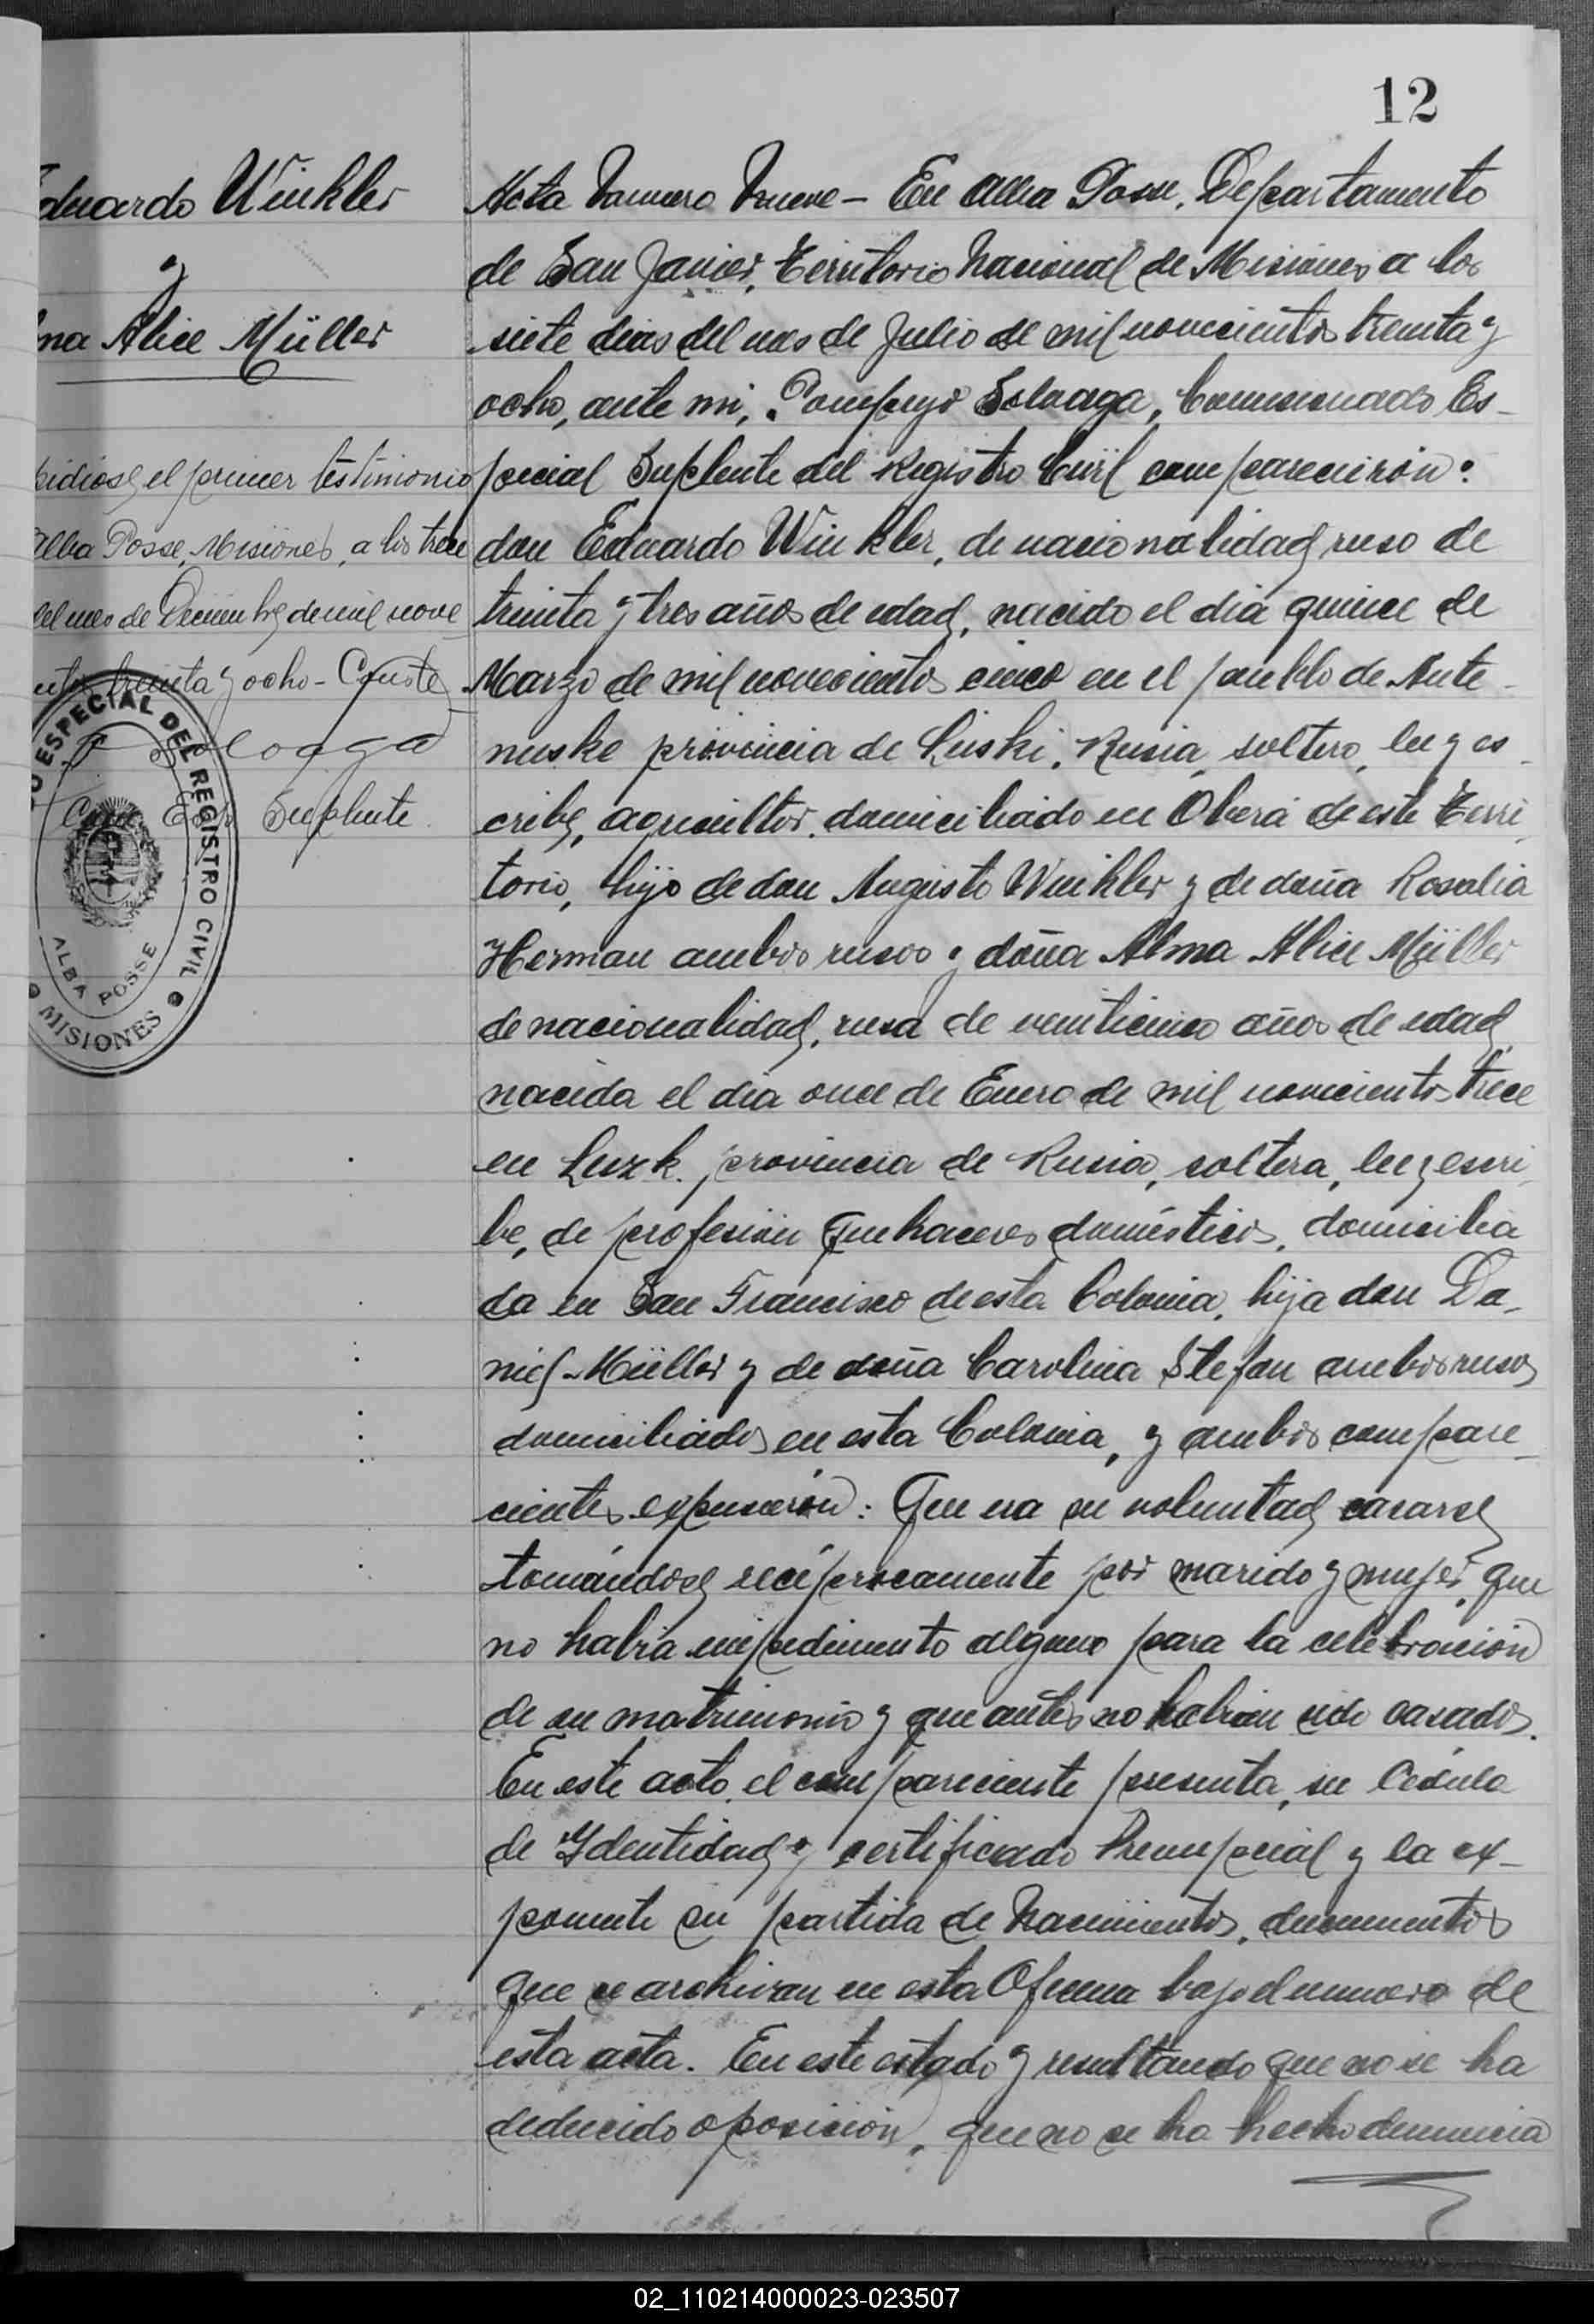 12
Eduardo Winkler
y
Alma Alice Müller
pidiose el primer testimonio
Alba Posse, Misiones, a los trece
del mes de Diciembre de mil nove_
treinta y ocho - Conste
P Soloaga
Com. Esp. Suplente
ESPECIAL DEL REGISTRO CIVIL
ALBA POSSE
MISIONES
Acta Número Nueve - En Alba Posse, Departamento
de San Javier, Territorio Nacional de Misiones a los
siete dias del mes de Julio de mil novecientos treinta y
ocho, ante mi, Pompeyo Soloaga, Comisionado Es_
pecial Suplente del Registro Civil comparecieron:
don Eduardo Winkler, de nacionalidad ruso de
treinta y tres años de edad, nacido el día quince de
Marzo de mil novecientos cinco en el pueblo de Ante_
nuske provincia de Luski, Rusia, soltero, lee y es_
cribe, agricultor, domiciliado en Oberá de este Terri_
torio, hijo de don Augusto Winkler y de doña Rosalia
Herman ambos rusos y doña Alma Alice Müller
de nacionalidad, rusa de veinticinco años de edad,
nacida el día once de Enero de mil novecientos trece
en Luzk, provincia de Rusia, soltera, lee y escri_
be, de profesión quehaceres domésticos, domicilia
da en San Francisco de esta Colonia, hija don Da_
niel Müller y de doña Carolina Stefan ambos rusos
domiciliados en esta Colonia, y ambos compare_
cientes expusieron: Que era su voluntad casarse
tomándose recíprocamente por marido y mujer, que
no habia impedimento alguno para la celebración
de su matrimonio y que antes no habian sido casados.
En este acto, el compareciente presenta, su Cédula
de Ydentidad y certificado Prenupcial y la ex_
ponente su partida de Nacimiento, documentos
que se archivan en esta Oficina bajo el numero de
esta acta. En este estado y resultando que no se ha
deducido oposición, que no se ha hecho denuncia
02_110214000023-023507